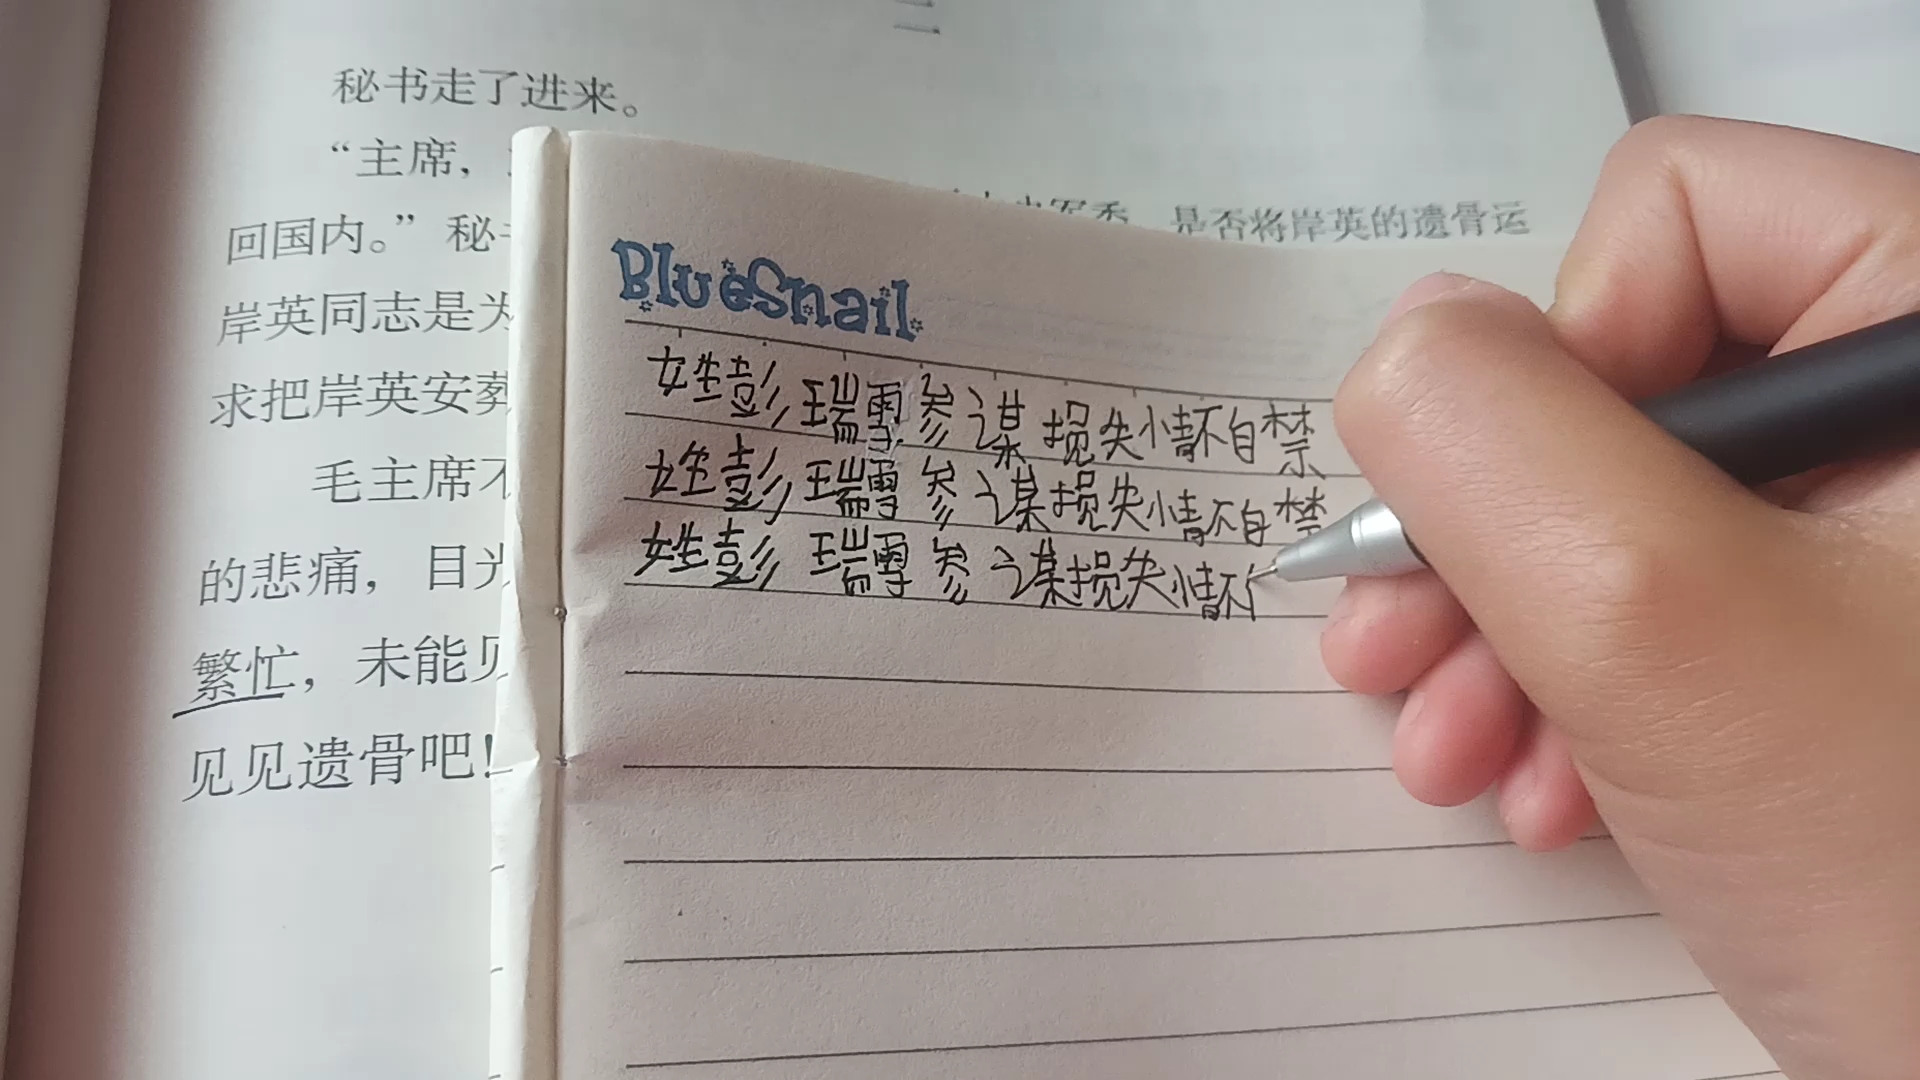 二
秘书走了进来。
“主席，
是否将岸英的遗骨运
回国内。”秘书
岸英同志是为
求把岸英安葬
毛主席不
的悲痛，目光
繁忙，未能见
见见遗骨吧！
BlueSnail
姓彭 瑞雪 参 谋 损失情不自禁
姓彭 瑞雪 参 谋损失情不自禁
姓彭 瑞雪 参 谋损失情不